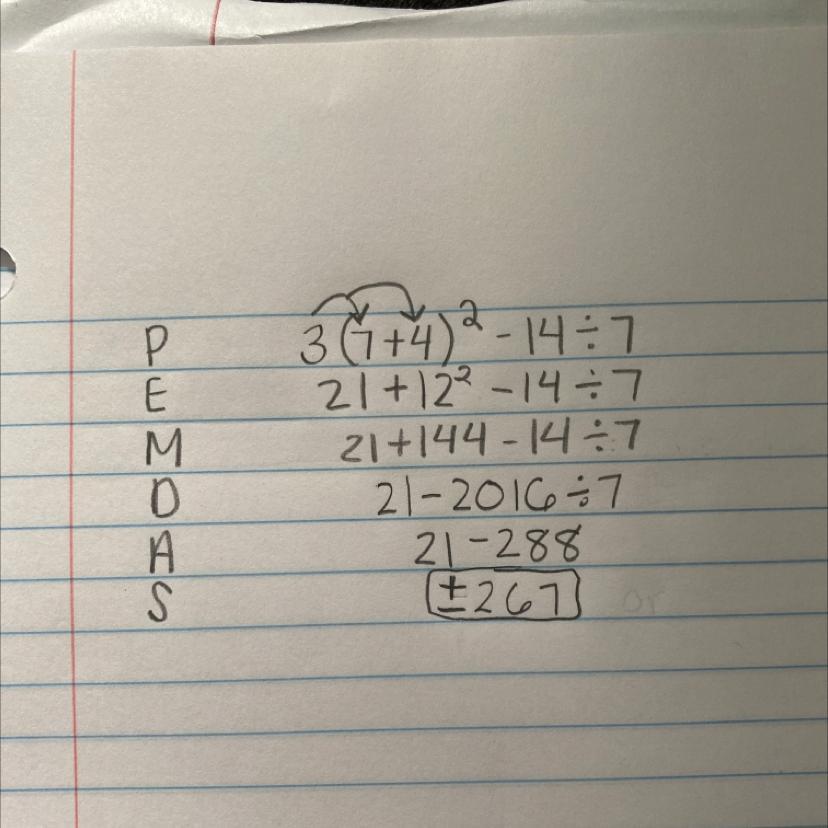 P 3(7+4)² - 14 ÷ 7
E 21 + 12² - 14 ÷ 7
M 21 + 144 - 14 ÷ 7
D 21 - 2016 ÷ 7
A 21 - 288
S ± 267 or